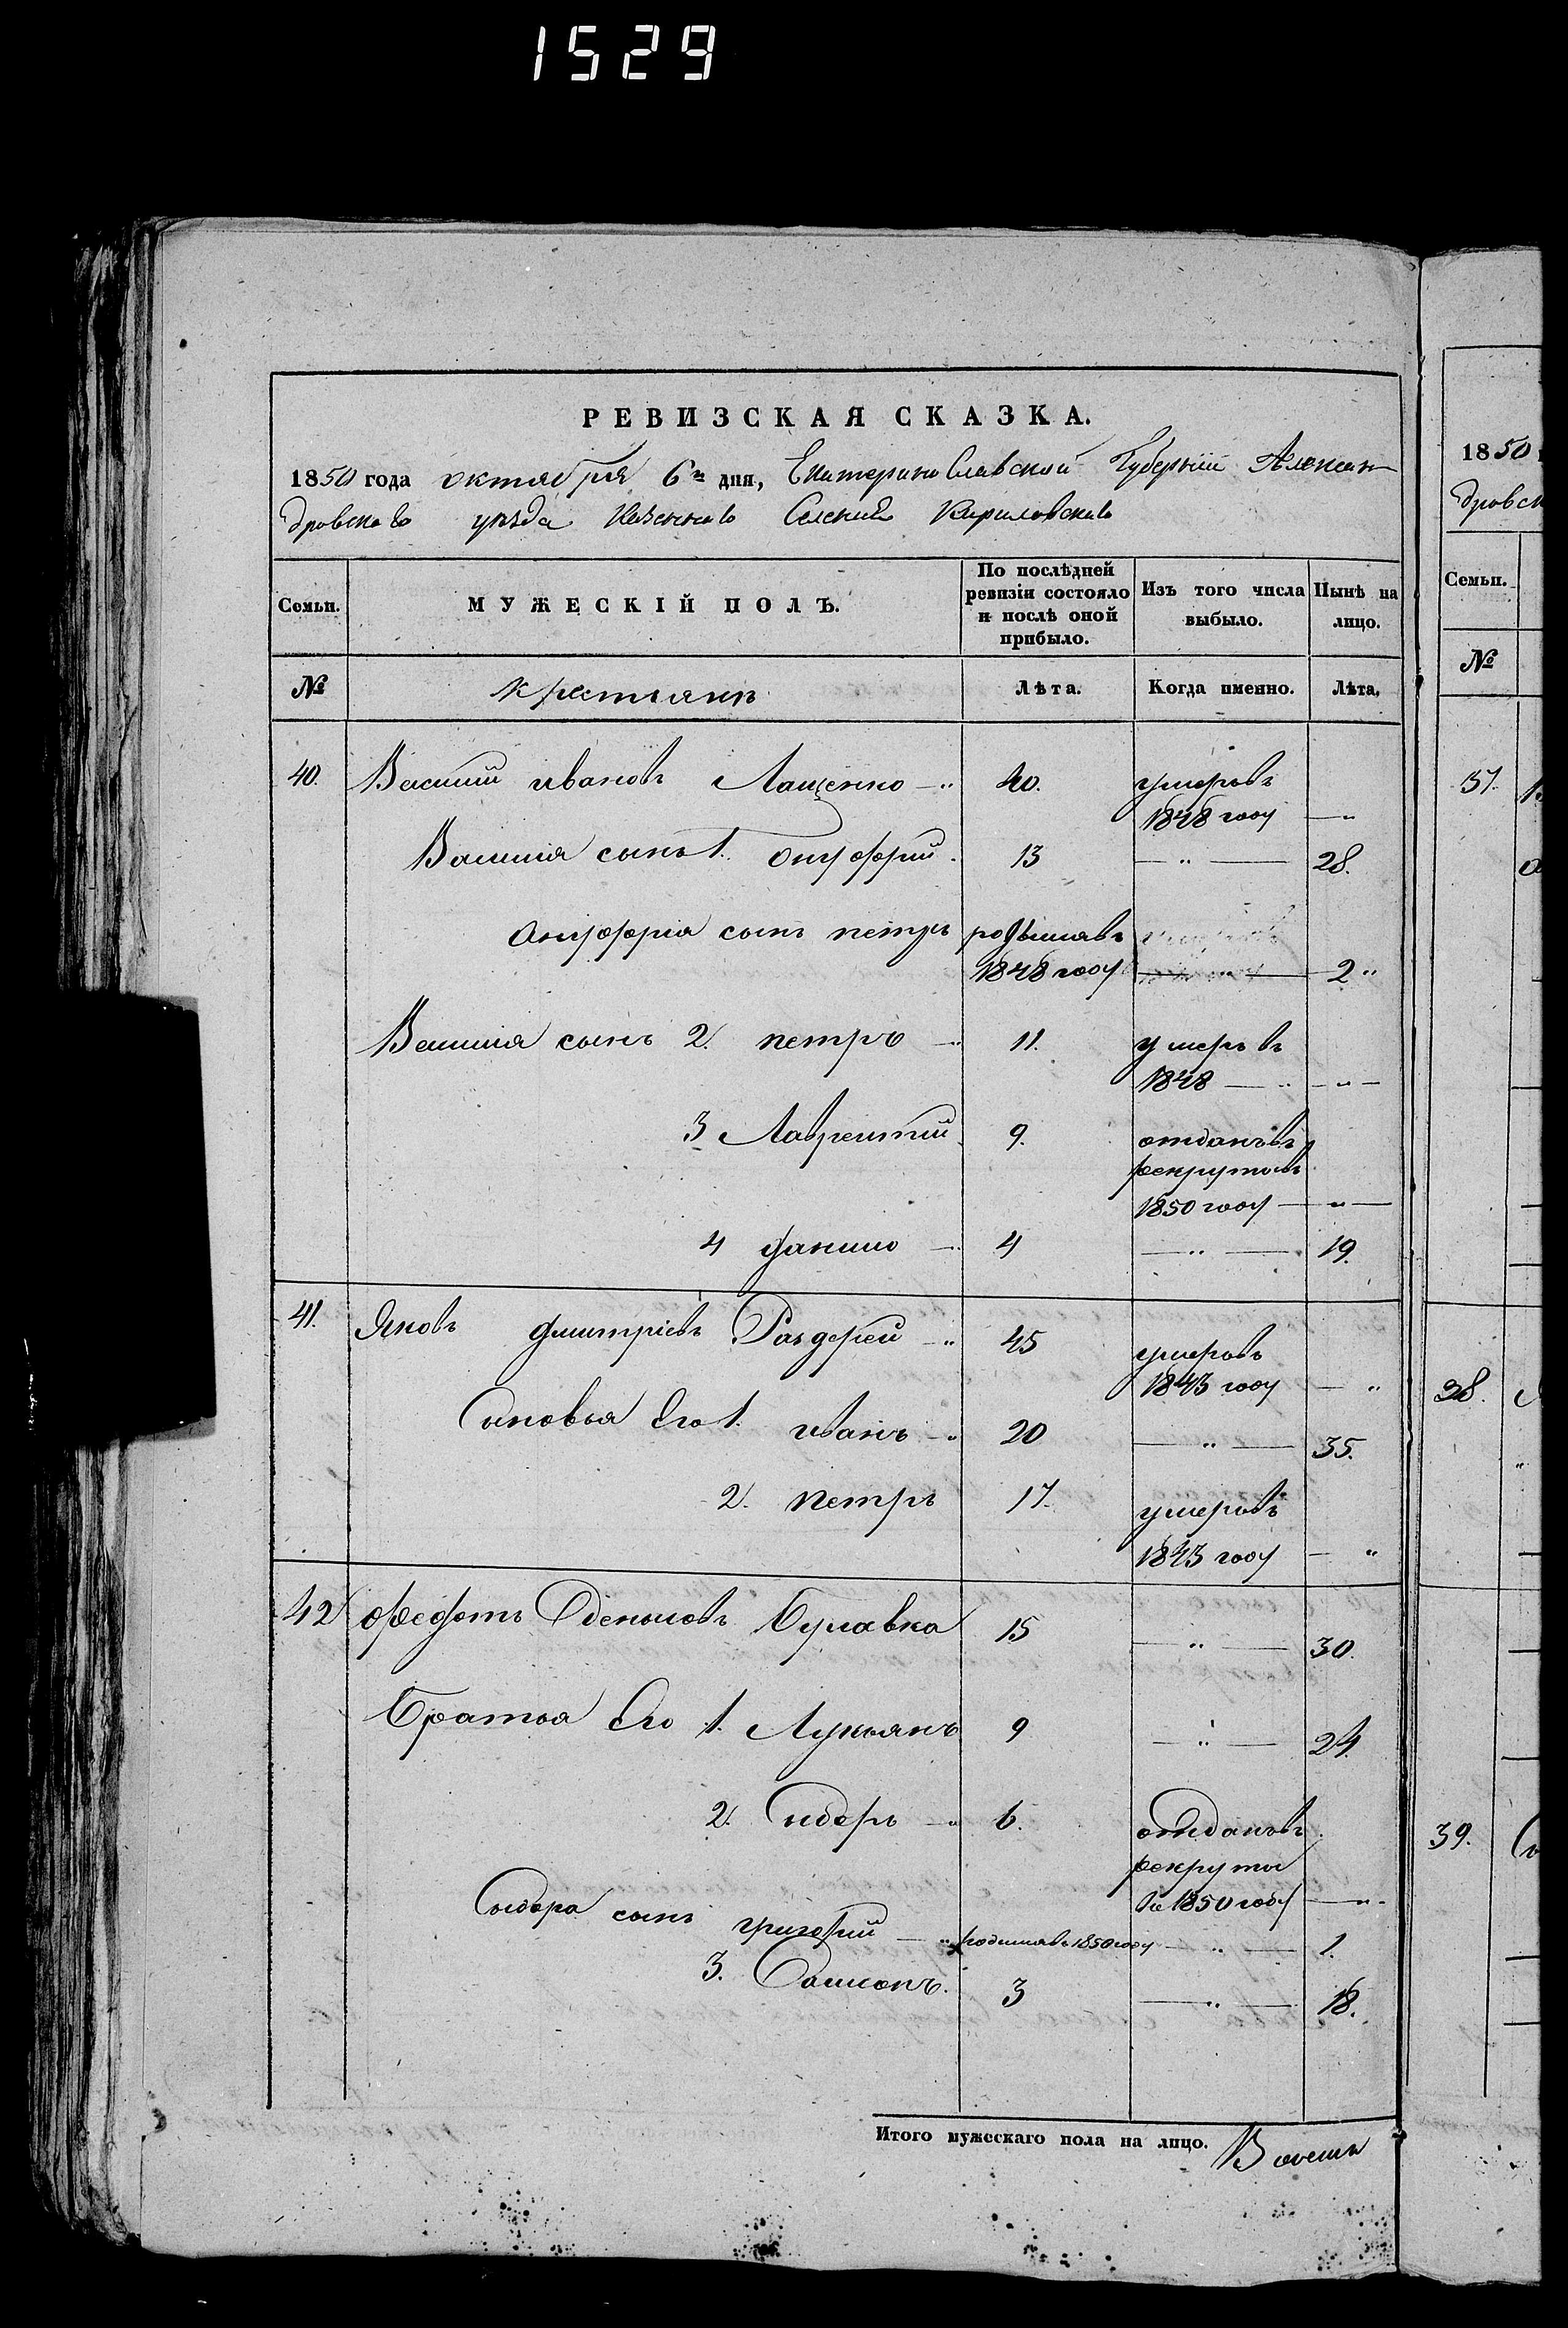 1529
РЕВИЗСКАЯ СКАЗКА.
1850 года октября 6го дня, Екатеринославской Губернии Алексан-
дровского уезда Казенного Селения Кириловского
Семьи.
МУЖЕСКІЙ ПОЛЪ.
По послѣдней ревизіи состояло и послѣ оной прибыло.
Изъ того числа выбыло.
Нынѣ на лицо.
№ крестьянъ Лѣта. Когда именно. Лѣта.
40. Василий ивановъ Лащенко — " 40. умеръ въ
1848 году — "
Василия сынъ 1. Онуфрий. 13 — " — 28.
Онуфрия сынъ петръ родылся въ
1848 году — " — 2 "
Василия сынъ 2. петръ — " 11. умеръ въ
1848 — " — " —
3 Лаврентий 9. отданъ въ
рекруты въ
1850 году — " —
4 данило — " 4 — " — 19.
41. Яковъ дмитріевъ Раздерей — " 45 умеръ въ
1843 году — "
Сыновья Его 1. иванъ — " 20 — " — 35.
2. петръ 17. умеръ въ
1843 году — "
42 федотъ Булавка 15 — " — 30.
Братья Его 1. Лукьянъ 9 — " — 24.
2. Сидоръ — " 6. отданъ въ
рекруты
въ 1850 году — " -
Сыдора сынъ григорий — " родился въ 1850 году — " — 1.
3. Самсонъ. 3 — " — 18.
Итого мужескаго пола на лицо. Восемь
1850
дровск
Семьи.
№
37.
38.
39.